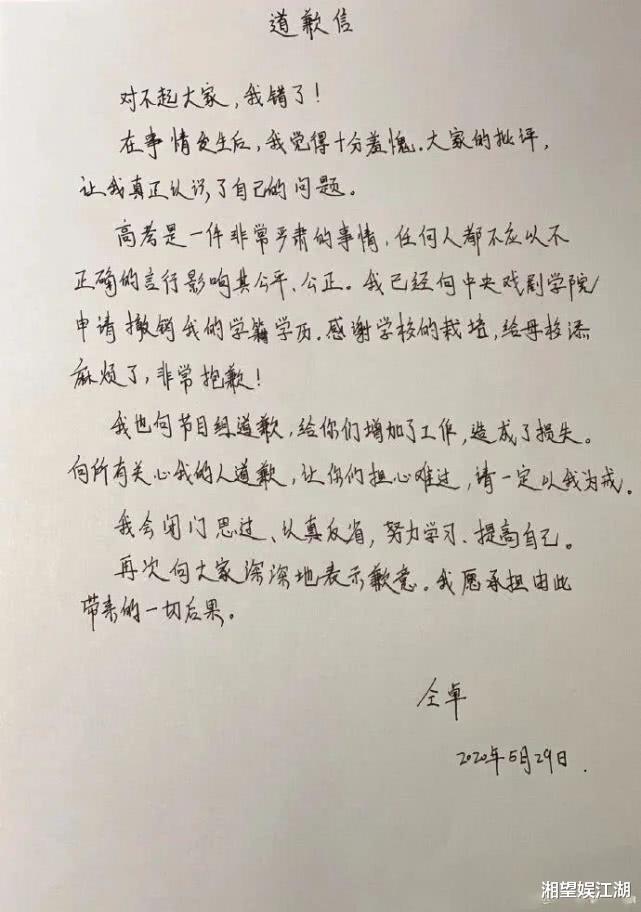 道歉信
对不起大家，我错了！
在事情发生后，我觉得十分羞愧。大家的批评，
让我真正认识了自己的问题。
高考是一件非常严肃的事情，任何人都不应以不
正确的言行影响其公平、公正。我已经向中央戏剧学院
申请撤销我的学籍学历。感谢学校的栽培，给母校添
麻烦了，非常抱歉！
我也向节目组道歉，给你们增加了工作，造成了损失。
向所有关心我的人道歉，让你们担心难过，请一定以我为戒。
我会闭门思过、认真反省，努力学习、提高自己。
再次向大家深深地表示歉意。我愿承担由此
带来的一切后果。
仝卓
2020年5月29日.
湘望娱江湖